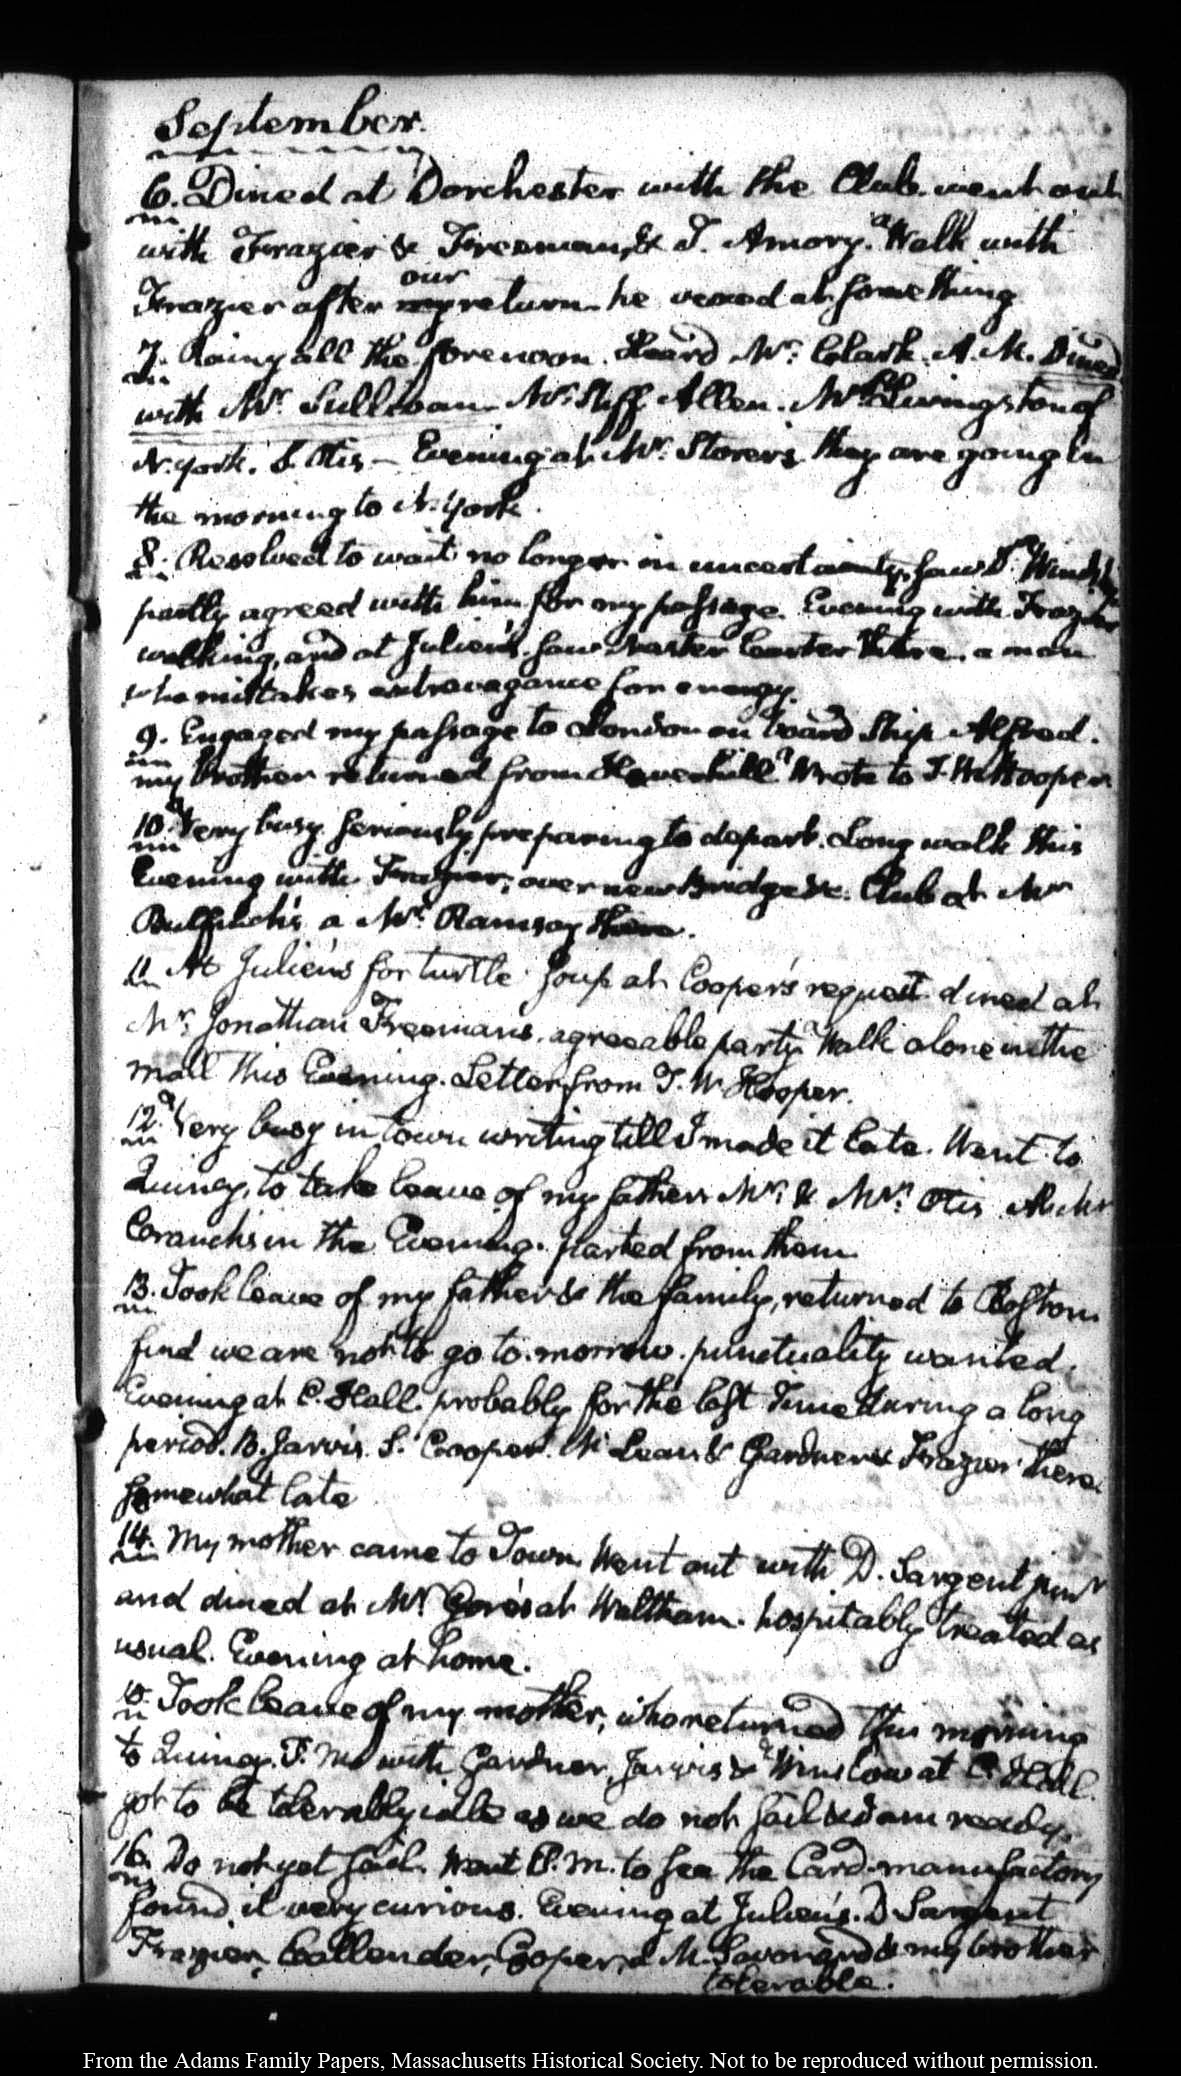 September.
6. Dined at Dorchester with the Club. went out
with Frazier & Freeman, & J. Amory. Walk with
our
Frazier after my return he vexed at something
7. Rainy all the forenoon. Heard Mr. Clark. A. M. Dined
with Mr. Sullivan Mr. Allen. Mr. Livingston of
N. york. S. Otis — Evening at Mr. Storer's they are going in
the morning to N. York.
8. Resolved to wait no longer in uncertainty, saw D.
partly agreed with him for my passage. Evening with Frazier
walking, and at Julien's. saw Carter there. a man
who mistakes extravagance for energy.
9. Engaged my passage to London on board Ship Alfred.
my brother returned from Haverhill. Wrote to J. W. Hooper
10. Very busy. seriously preparing to depart. Long walk this
Evening with Frazier, over new Bridge &c. Club at Mr
Bulfinch's a Mr. Ramsay there.
11. At Julien's for turtle soup at Cooper's request dined at
Mr. Jonathan Freemans. agreeable party. Walk alone in the
mall this Evening. Letter from J. W. Hooper.
12. Very busy in town writing till I made it late. Went to
Quincy, to take leave of my father Mr. & Mrs. Otis At Mr
Cranch's in the Evening. parted from them
13. Took leave of my father & the family, returned to Boston
find we are not to go to.morrow. punctuality wanted.
Evening at C. Hall. probably for the last time during a long
period. B. Jarvis. S. Cooper. & Gardner & Frazier there.
somewhat late
14. My mother came to Town. Went out with D. Sargent junr
and dined at Mr. Gore's at Waltham. hospitably treated as
usual. Evening at home.
15. Took leave of my mother, who returned this morning
to Quincy. with Gardner, Jarvis & Winslow at C. Hall.
got to be tolerably idle as we do not sail & I am ready.
16. Do not yet sail. Went P. M. to see the Card. manufactory
found it very curious. Evening at Julien's. D Sargent
Frazier, Callender, Cooper, a M. & my brother
tolerable.
From the Adams Family Papers, Massachusetts Historical Society. Not to be reproduced without permission.